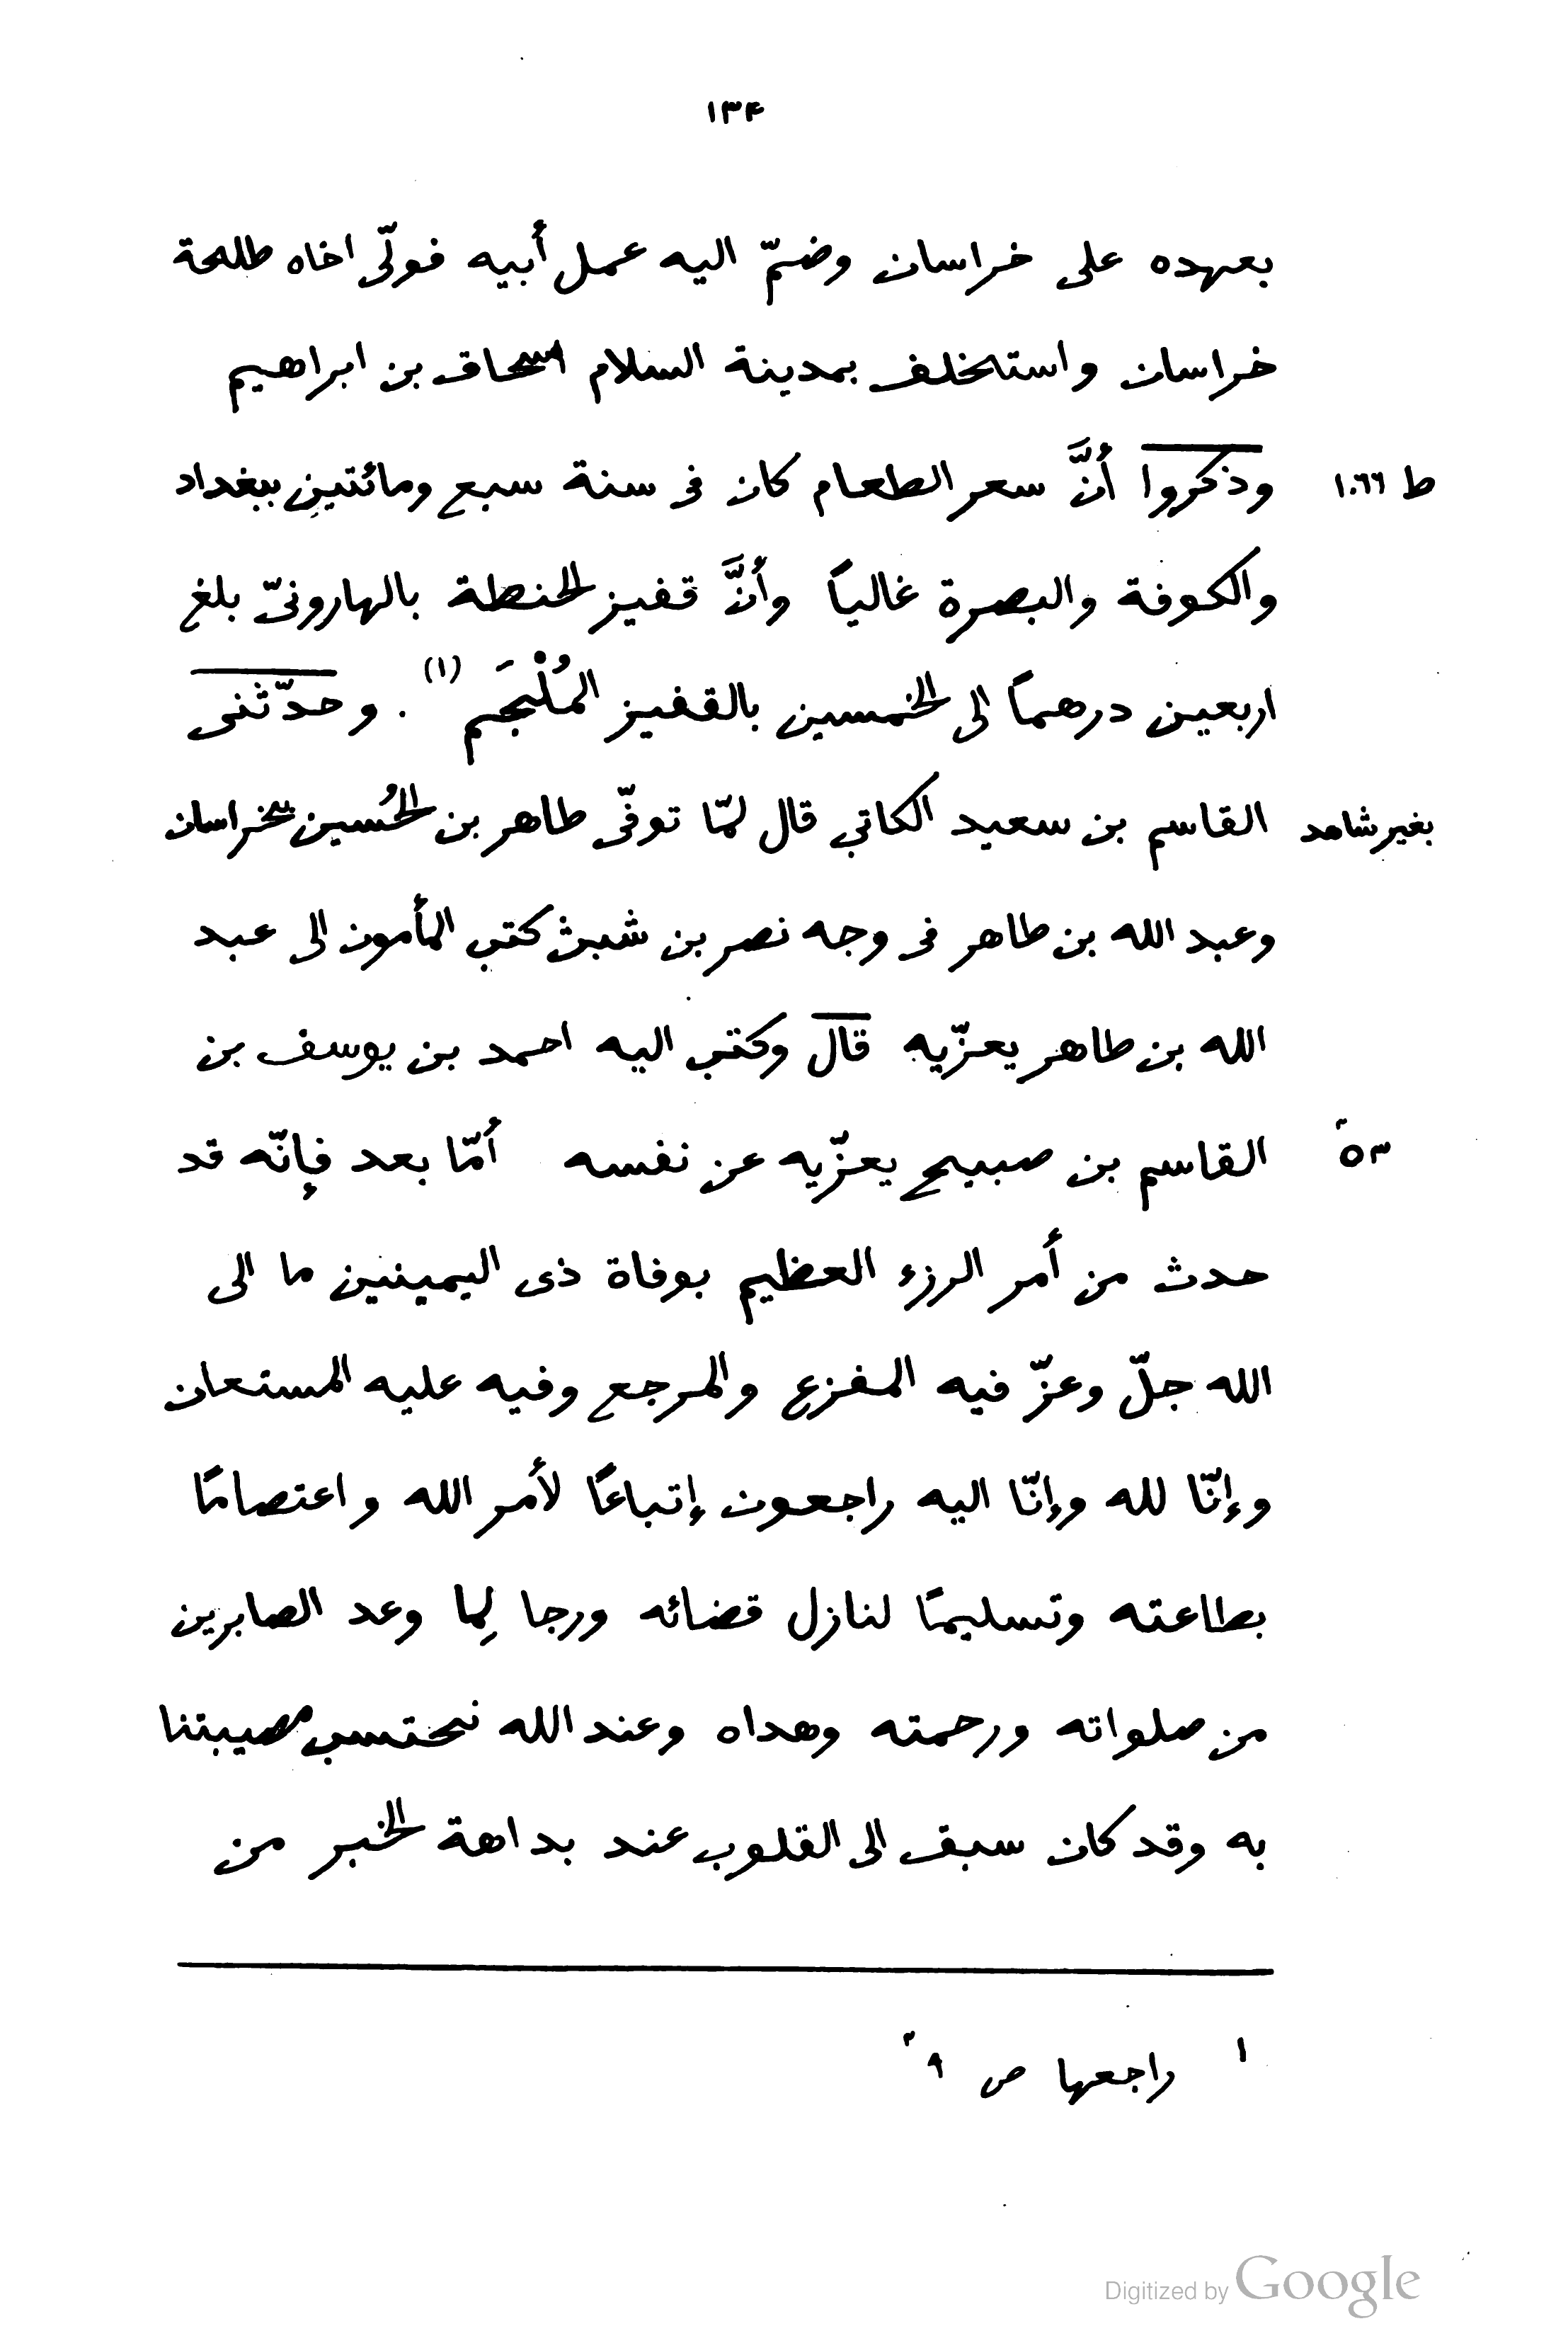 ١٣۴
بعهده على خراسان وضمّ اليه عمل أبيه فولّى اخاه طلحة
خراسان واستخلف بمدينة السلام اسحاق بن ابراهيم
ط ١٠٦٦ وذكروا أنَّ سعر الطعام كان فى سنة سبع ومائتين ببغداد
والكوفة والبصرة غاليًا وأنَّ قفيز الحنطة بالهارونىّ بلغ
اربعين درهمًا الى الخمسين بالقفيز المُلْجَم (١) . وحدّثنى
بغير شاهد القاسم بن سعيد الكاتب قال لمّا توفّى طاهر بن الحُسين بخراسان
وعبد الله بن طاهر فى وجه نصر بن شبث كتب المأمون الى عبد
الله بن طاهر يعزّيه قال وكتب اليه احمد بن يوسف بن
القاسم بن صبيح يعزّيه عن نفسه أمّا بعد فإنّه قد
حدث من أمر الرزء العظيم بوفاة ذى اليمينين ما الى
الله جلّ وعزّ فيه المفزع والمرجع وفيه عليه المستعان
وإنّا لله وإنّا اليه راجعون إتباعًا لأمر الله واعتصامًا
بطاعته وتسليمًا لنازل قضائه ورجا لِما وعد الصابرين
من صلواته ورحمته وهداه وعند الله نحتسب مصيبتنا
به وقد كان سبق الى القلوب عند بداهة الخبر من
١ راجعها ص ٩
Digitized by Google